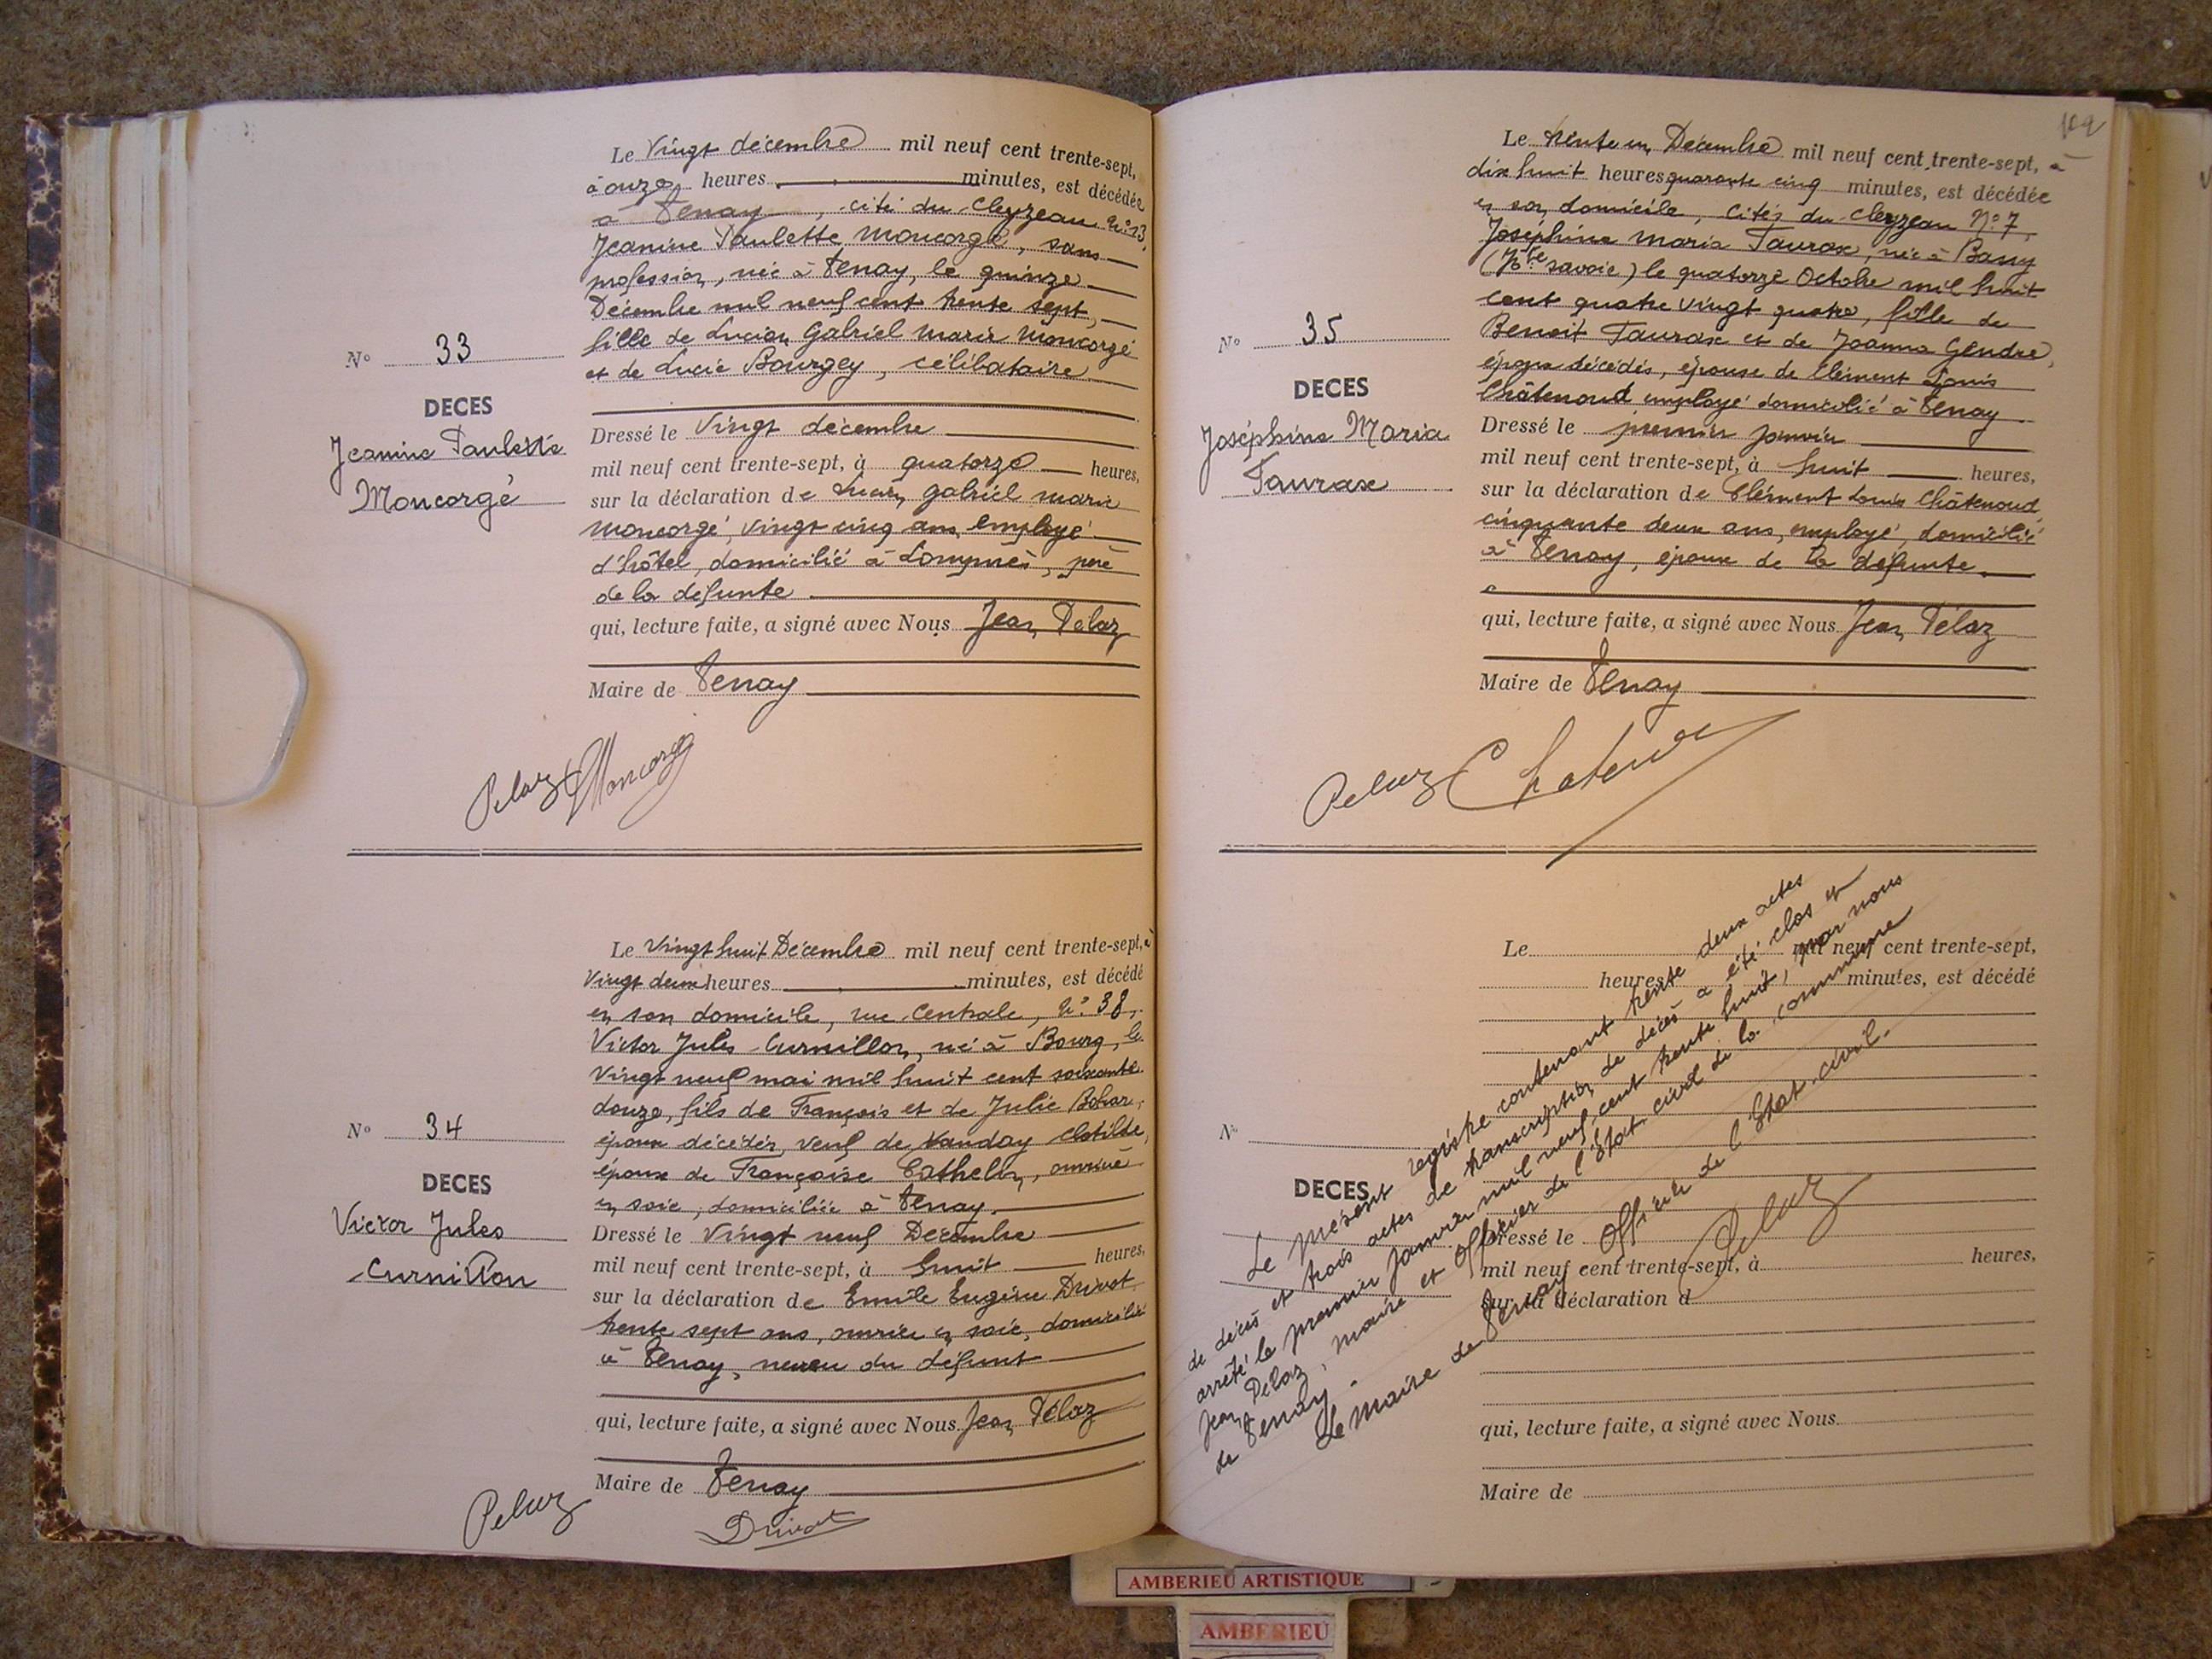 Le Vingt décembre mil neuf cent trente-sept,
à onze heures minutes, est décédée
à Tenay, cité du Cleyzeau N° 13,
Jeanine Paulette Moncorgé, sans
profession, née à Tenay, le quinze
Décembre mil neuf cent trente sept,
fille de Lucien Gabriel Marie Moncorgé
et de Lucie Bourgey, célibataire
N° 33
DECES
Jeanine Paulette
Moncorgé
Dressé le Vingt décembre
mil neuf cent trente-sept, à quatorze heures,
sur la déclaration de Lucien Gabriel Marie
Moncorgé, vingt cinq ans, employé
d'hôtel, domicilié à Lompnès, père
de la défunte
qui, lecture faite, a signé avec Nous Jean Pélaz
Maire de Tenay
Pelaz Moncorgé
Le Vingt huit Décembre mil neuf cent trente-sept, à
Vingt deux heures minutes, est décédé
en son domicile, rue Centrale, N° 38,
Victor Jules Curnillon, né à Bourg, le
Vingt neuf mai mil huit cent soixante
douze, fils de François et de Julie Bohar,
époux décédés, veuf de Vanday Clotilde,
époux de Françoise Cathelin, ouvrière
en soie, domiciliée à Tenay.
N° 34
DECES
Victor Jules
Curnillon
Dressé le Vingt neuf Décembre
mil neuf cent trente-sept, à huit heures,
sur la déclaration de Emile Eugène Drivot
trente sept ans, ouvrier en soie, domicilié
à Tenay, neveu du défunt
qui, lecture faite, a signé avec Nous Jean Pélaz
Maire de Tenay
Pelaz Drivot
102
Le trente un Décembre mil neuf cent trente-sept, à
dix huit heures quarante cinq minutes, est décédée
en son domicile, Cités du Cleyzeau N° 7,
Joséphine Maria Taurax, née à Bassy
(Hte Savoie) le quatorze Octobre mil huit
cent quatre vingt quatre, fille de
Benoit Taurax et de Joanna Gendre,
époux décédés, épouse de Clément Louis
Châtenoud employé domicilié à Tenay
N° 35
DECES
Joséphine Maria
Taurax
Dressé le premier janvier
mil neuf cent trente-sept, à huit heures,
sur la déclaration de Clément Louis Châtenoud
cinquante deux ans, employé, domicilié
à Tenay, époux de la défunte
qui, lecture faite, a signé avec Nous Jean Pélaz
Maire de Tenay
Pelaz Chatenoud
Le mil neuf cent trente-sept,
heures minutes, est décédé
N°
DECES
Dressé le
mil neuf cent trente-sept, à heures,
sur la déclaration d
qui, lecture faite, a signé avec Nous
Maire de
Le présent registre contenant trente deux actes
de décès et trois actes de transcription de décès a été clos et
arrêté le premier Janvier mil neuf cent trente huit, par nous
Jean Pélaz, maire et Officier de l'Etat civil de la commune
de Tenay.
Le Maire de Tenay Officier de l'Etat civil.
Pelaz
AMBERIEU ARTISTIQUE
AMBERIEU